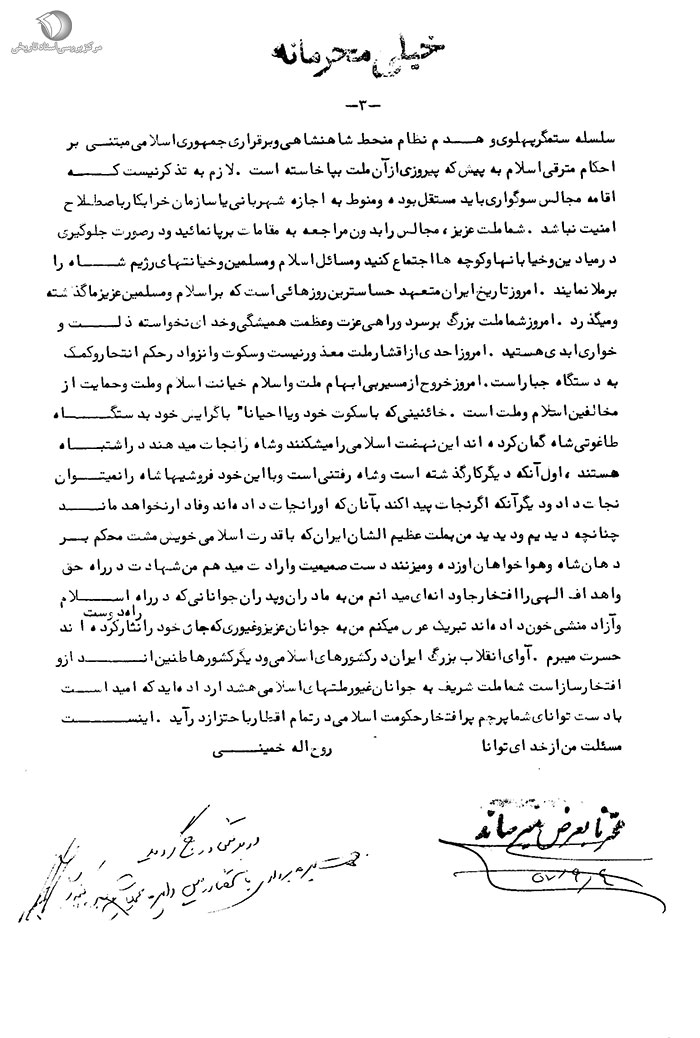 مرکز بررسی اسناد تاریخی
خیلی محرمانه
-۳-
سلسله ستمگر پهلوی و هدم نظام منحط شاهنشاهی و برقراری جمهوری اسلامی مبتنی بر
احکام مترقی اسلام به پیش که پیروزی از آن ملت بپا خاسته است . لازم به تذکر نیست که
اقامه مجالس سوگواری باید مستقل بوده و منوط به اجازه شهربانی یا سازمان خرابکار باصطلاح
امنیت نباشد . شما ملت عزیز ، مجالس را بدون مراجعه به مقامات برپا نمائید و در صورت جلوگیری
در میادین و خیابانها و کوچه ها اجتماع کنید و مسائل اسلام و مسلمین و خیانتهای رژیم شاه را
برملا نمایند . امروز تاریخ ایران متعهد حساسترین روزهائی است که بر اسلام و مسلمین عزیز ما گذشته
و میگذرد . امروز شما ملت بزرگ بر سر دو راهی عزت و عظمت همیشگی و خدای نخواسته ذلت و
خواری ابدی هستید . امروز احدی از اقشار ملت معذور نیست و سکوت و انزوا در حکم انتحار و کمک
به دستگاه جبار است . امروز خروج از مسیر بی ابهام ملت و اسلام خیانت اسلام و ملت و حمایت از
مخالفین اسلام و ملت است . خائنینی که با سکوت خود و یا احیانا" با گرایس خود بدستگاه
طاغوتی شاه گمان کرده اند این نهضت اسلامی را میشکنند و شاه را نجات میدهند در اشتباه
هستند ، اول آنکه دیگر کار گذشته است و شاه رفتنی است و با این خود فروشیها شاه را نمیتوان
نجات داد و دیگر آنکه اگر نجات پیدا کند بآنان که او را نجات داده اند وفادار نخواهد ماند
چنانچه دیدیم و دیدید من بملت عظیم الشان ایران که با قدرت اسلامی خویش مشت محکم بر
دهان شاه و هواخواهان او زده و میزنند دست صمیمیت و ارادت میدهم من شهادت در راه حق
و اهداف الهی را افتخار جاودانه ای میدانم من به مادران و پدران جوانانی که در راه اسلام
و آزاد منشی خون داده اند تبریک عرض میکنم من به جوانان عزیز و غیوری که جان خود را در راه دوست نثار کرده اند
حسرت میبرم . آوای انقلاب بزرگ ایران در کشورهای اسلامی و دیگر کشورها طنین انداز و
افتخار ساز است شما ملت شریف به جوانان غیور ملتهای اسلامی هشدار داده اید که امید است
با دست توانای شما پرچم پر افتخار حکومت اسلامی در تمام اقطار باحتزاز درآید . اینست
مسئلت من از خدای توانا روح اله خمینی
محترمانا بعرض میرساند
۵۷/۹/۴